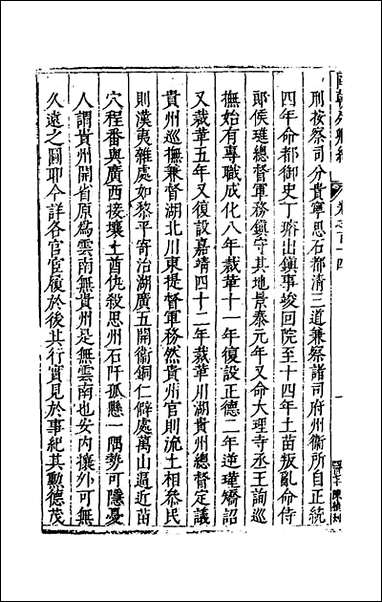 國朝列卿紀 卷之百十四 一
刑按察司分貴寧思石都清三道兼察諸司府州衛所自正統
四年命都御史丁璿出鎮事峻回院至十四年土苗叛亂命侍
郎侯璡總督軍務鎮守其地景泰元年又命大理寺丞王詢巡
撫始有專職成化八年裁革十一年復設正德二年逆瑾矯詔
又裁革五年又復設嘉靖四十二年裁革川湖貴州總督定議
貴州巡撫兼督湖北川東提督軍務然貴州官則流土相叅民
則漢夷雜處如黎平寄治湖廣五開衛銅仁僻處萬山逼近苗
穴程番與廣西接壤土酋仇殺思州石阡孤懸一隅勢可隱憂
人謂貴州開省原為雲南無貴州是無雲南也安内攘外可無
久遠之圖耶今詳各官宦履於後其行實見於事紀其勲德茂